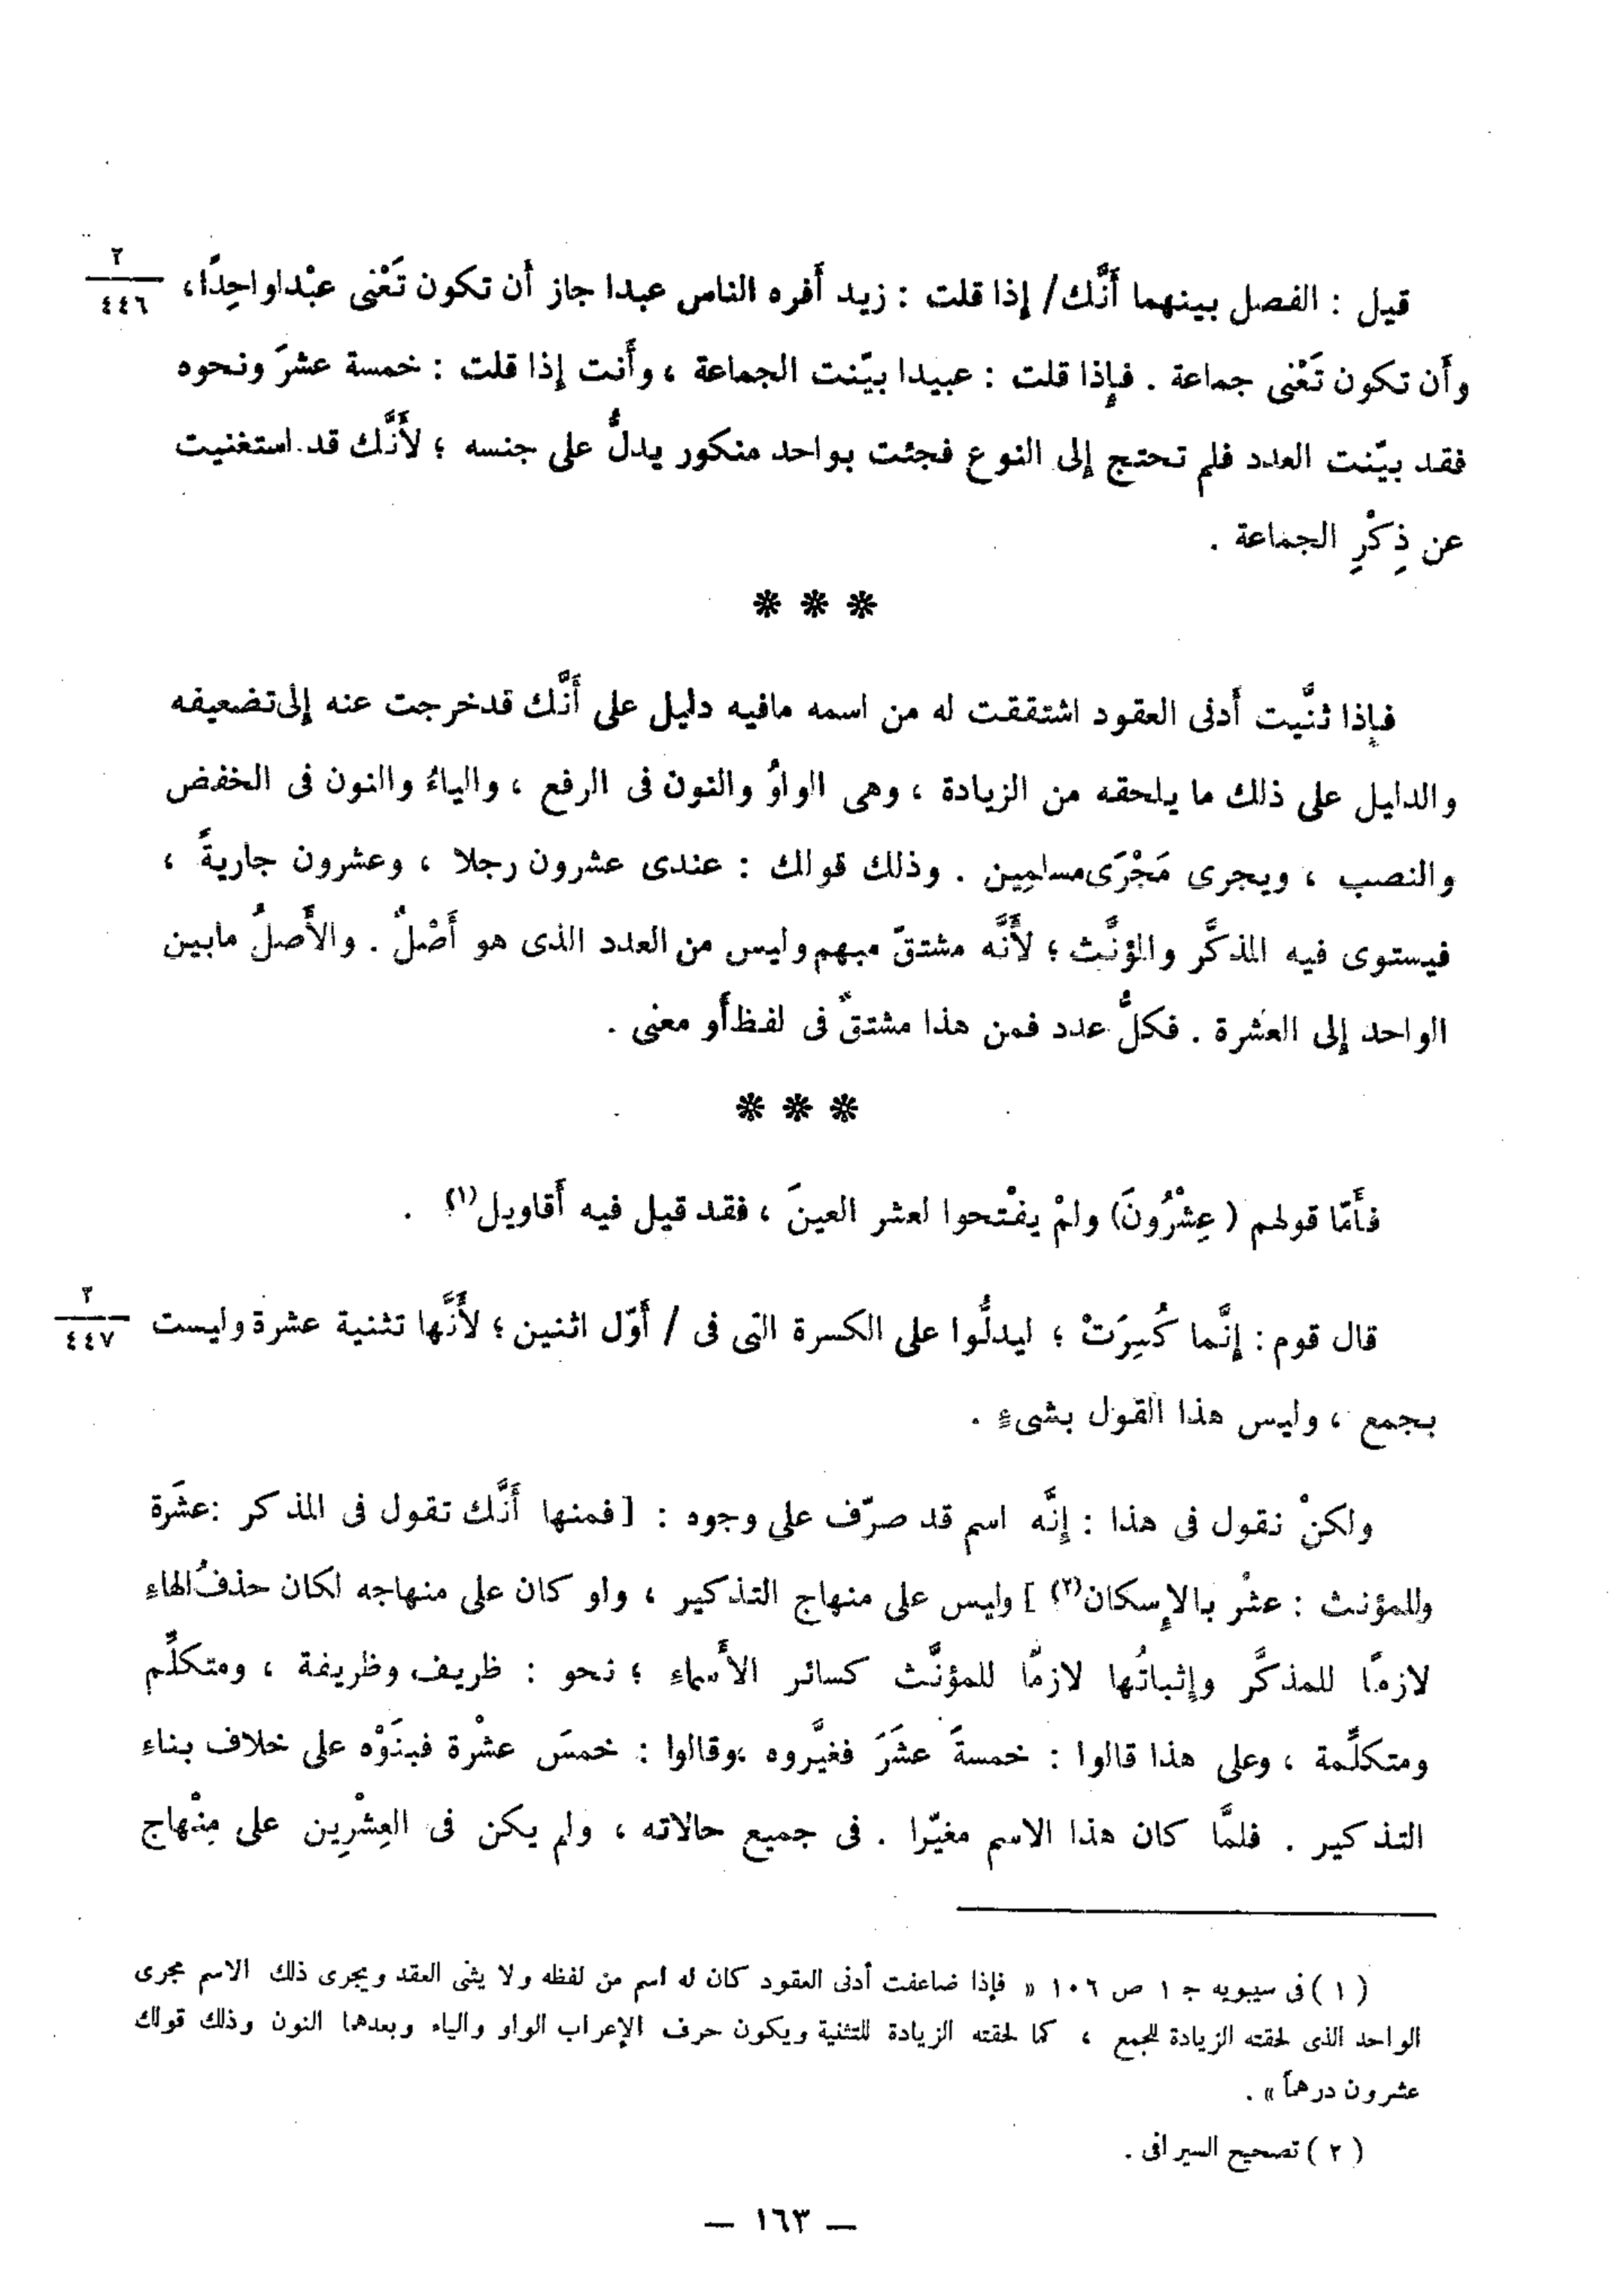 قيل : الفصل بينهما أَنَّك / إذا قلت : زيد أَفره الناس عبدا جاز أَن تكون تَعْنى عبْدا واحِدًا ، ٢/٤٤٦
وأَن تكون تَعْنى جماعة . فإِذا قلت : عبيدا بيّنت الجماعة ، وأَنت إذا قلت : خمسة عشرَ ونحوه
فقد بيّنت العدد فلم تحتج إلى النوع فجئت بواحد منكور يدلُّ على جنسه ؛ لأَنَّك قد استغنيت
عن ذِكْرِ الجماعة .
* * *
فإِذا ثنَّيت أَدنى العقود اشتققت له من اسمه مافيه دليل على أَنَّك قدخرجت عنه إلى تضعيفه
والدليل على ذلك ما يلحقه من الزيادة ، وهى الواوُ والنون فى الرفع ، والياءُ والنون فى الخفض
والنصب ، ويجرى مَجْرَى مسلمِين . وذلك قولك : عندى عشرون رجلا ، وعشرون جاريةً ،
فيستوى فيه المذكَّر والمؤنَّث ؛ لأَنَّه مشتقّ مبهم وليس من العدد الذى هو أَصْلٌ . والأَصلُ مابين
الواحد إلى العشرة . فكلُّ عدد فمن هذا مشتقٌ فى لفظ أَو معنى .
* * *
فأَمّا قولهم ( عِشْرُونَ) ولمْ يفْتحوا لعشر العينَ ، فقد قيل فيه أَقاويل(١) .
قال قوم : إنَّما كُسِرَتْ ؛ ليدلُّوا على الكسرة التى فى / أَوّل اثنين ؛ لأَنَّها تثنية عشرة وليست ٢/٤٤٧
بجمع ، وليس هذا القول بشىءٍ .
ولكنْ نقول فى هذا : إنَّه اسم قد صرّف على وجوه : [ فمنها أَنَّك تقول فى المذكر : عشَرة
وللمؤنث : عشْر بالإِسكان(٢) ] وليس على منهاج التذكير ، ولو كان على منهاجه لكان حذفُ الهاءِ
لازمًا للمذكَّر وإثباتُها لازمًا للمؤنَّث كسائر الأَسماءِ ؛ نحو : ظريف وظريفة ، ومتكلِّم
ومتكلِّمة ، وعلى هذا قالوا : خمسةَ عشَرَ فغيَّروه ،وقالوا : خمسَ عشْرة فبنَوْه على خلاف بناءِ
التذكير . فلمَّا كان هذا الاسم مغيّرا . فى جميع حالاته ، ولم يكن فى العِشْرِين على مِنْهاج
( ١ ) فى سيبويه ج ١ ص ١٠٦ « فإذا ضاعفت أدنى العقود كان له اسم من لفظه ولا يثنى العقد ويجرى ذلك الاسم مجرى
الواحد الذى لحقته الزيادة للجمع ، كما لحقته الزيادة للتثنية ويكون حرف الإعراب الواو والياء وبعدهما النون وذلك قولك
عشرون درهماً » .
( ٢ ) تصحيح السيرافى .
— ١٦٣ —